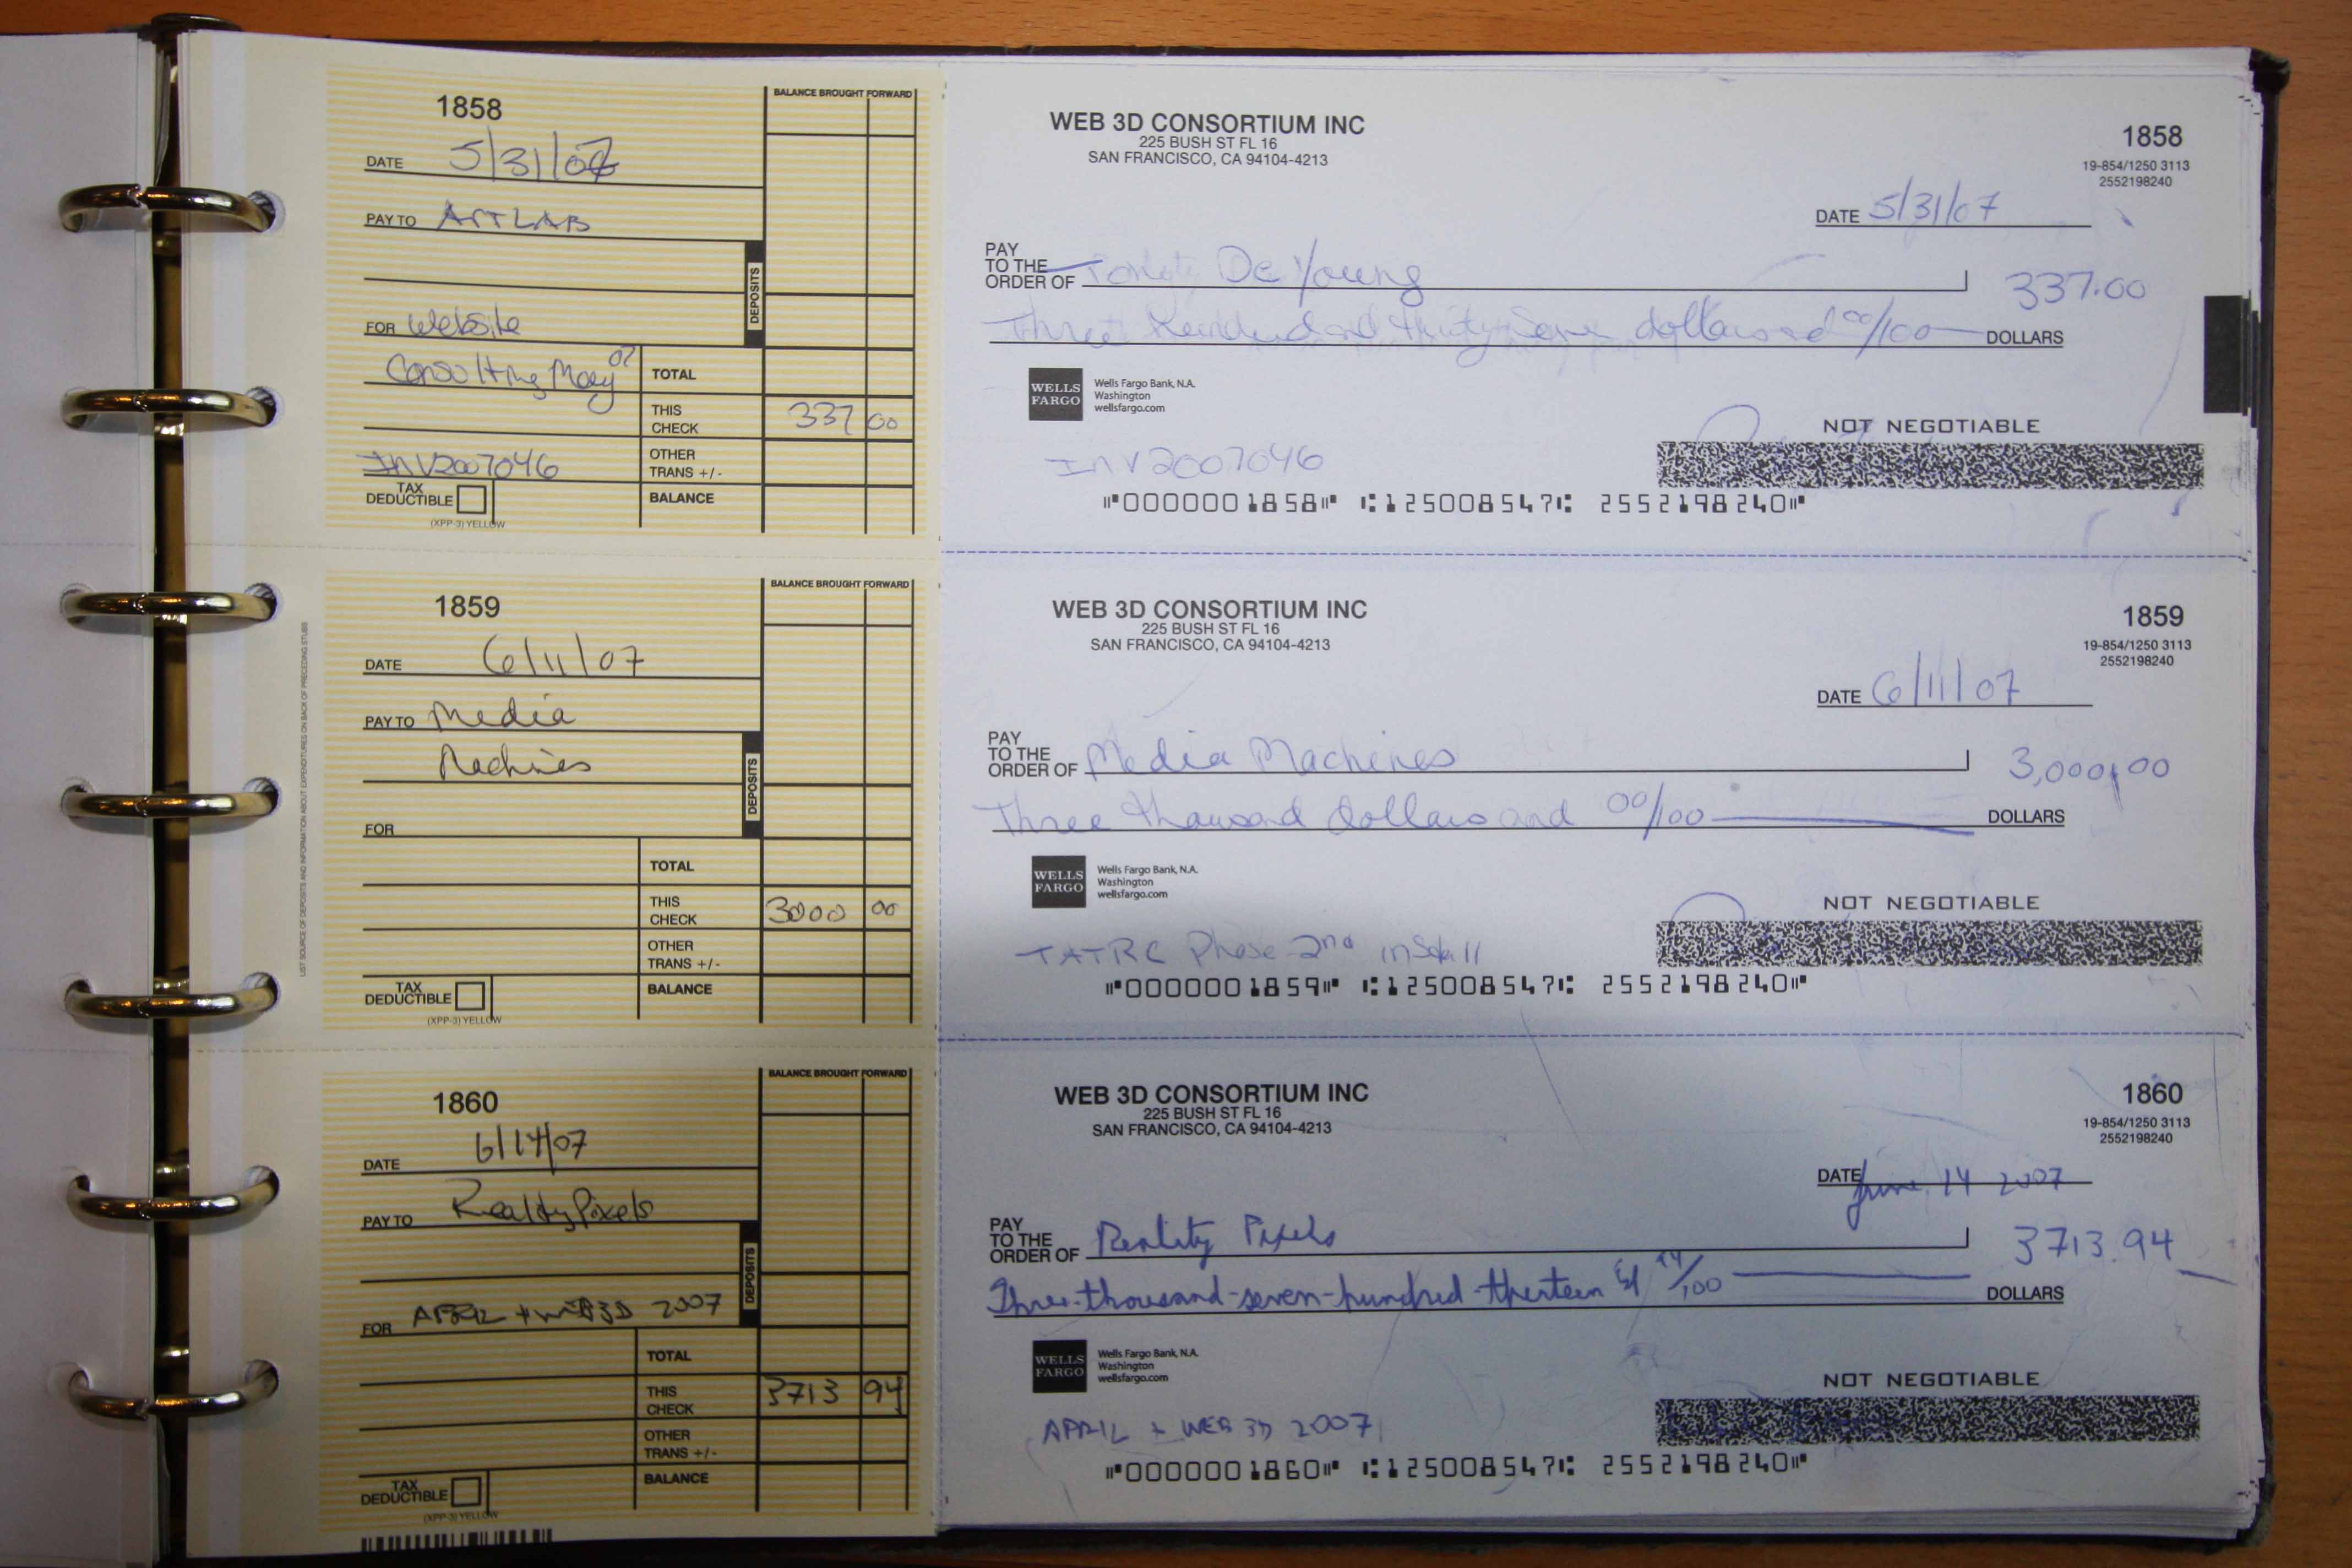 1858
BALANCE BROUGHT FORWARD
DATE 5/31/07
PAY TO ArtLAB
DEPOSITS
FOR Website
Consulting May 07
TOTAL
THIS CHECK 337 00
INV2007046
OTHER TRANS +/-
TAX DEDUCTIBLE
BALANCE
(XPP-3) YELLOW
WEB 3D CONSORTIUM INC
225 BUSH ST FL 16
SAN FRANCISCO, CA 94104-4213
1858
19-854/1250 3113
2552198240
DATE 5/31/07
PAY
TO THE
ORDER OF De Young
337.00
Three Hundred and thirty Seven dollars and 00/100 DOLLARS
WELLS FARGO
Wells Fargo Bank, N.A.
Washington
wellsfargo.com
NOT NEGOTIABLE
INV2007046
⑈0000001858⑈ ⑆125008547⑆ 2552198240⑈
LIST SOURCE OF DEPOSITS AND INFORMATION ABOUT EXPENDITURES ON BACK OF PRECEDING STUBS
1859
BALANCE BROUGHT FORWARD
DATE 6/11/07
PAY TO Media
Machines
DEPOSITS
FOR
TOTAL
THIS CHECK 3000 00
OTHER TRANS +/-
TAX DEDUCTIBLE
BALANCE
(XPP-3) YELLOW
WEB 3D CONSORTIUM INC
225 BUSH ST FL 16
SAN FRANCISCO, CA 94104-4213
1859
19-854/1250 3113
2552198240
DATE 6/11/07
PAY
TO THE
ORDER OF Media Machines
3,000.00
Three thousand dollars and 00/100 DOLLARS
WELLS FARGO
Wells Fargo Bank, N.A.
Washington
wellsfargo.com
NOT NEGOTIABLE
TATRC Phase 2nd install
⑈0000001859⑈ ⑆125008547⑆ 2552198240⑈
1860
BALANCE BROUGHT FORWARD
DATE 6/14/07
PAY TO Reality Pixels
DEPOSITS
FOR APRIL + WEB3D 2007
TOTAL
THIS CHECK 3713 94
OTHER TRANS +/-
TAX DEDUCTIBLE
BALANCE
(XPP-3) YELLOW
WEB 3D CONSORTIUM INC
225 BUSH ST FL 16
SAN FRANCISCO, CA 94104-4213
1860
19-854/1250 3113
2552198240
DATE June, 14 2007
PAY
TO THE
ORDER OF Reality Pixels
3713.94
Three-thousand-seven-hundred-thirteen & 94/100 DOLLARS
WELLS FARGO
Wells Fargo Bank, N.A.
Washington
wellsfargo.com
NOT NEGOTIABLE
APRIL + WEB 3D 2007
⑈0000001860⑈ ⑆125008547⑆ 2552198240⑈